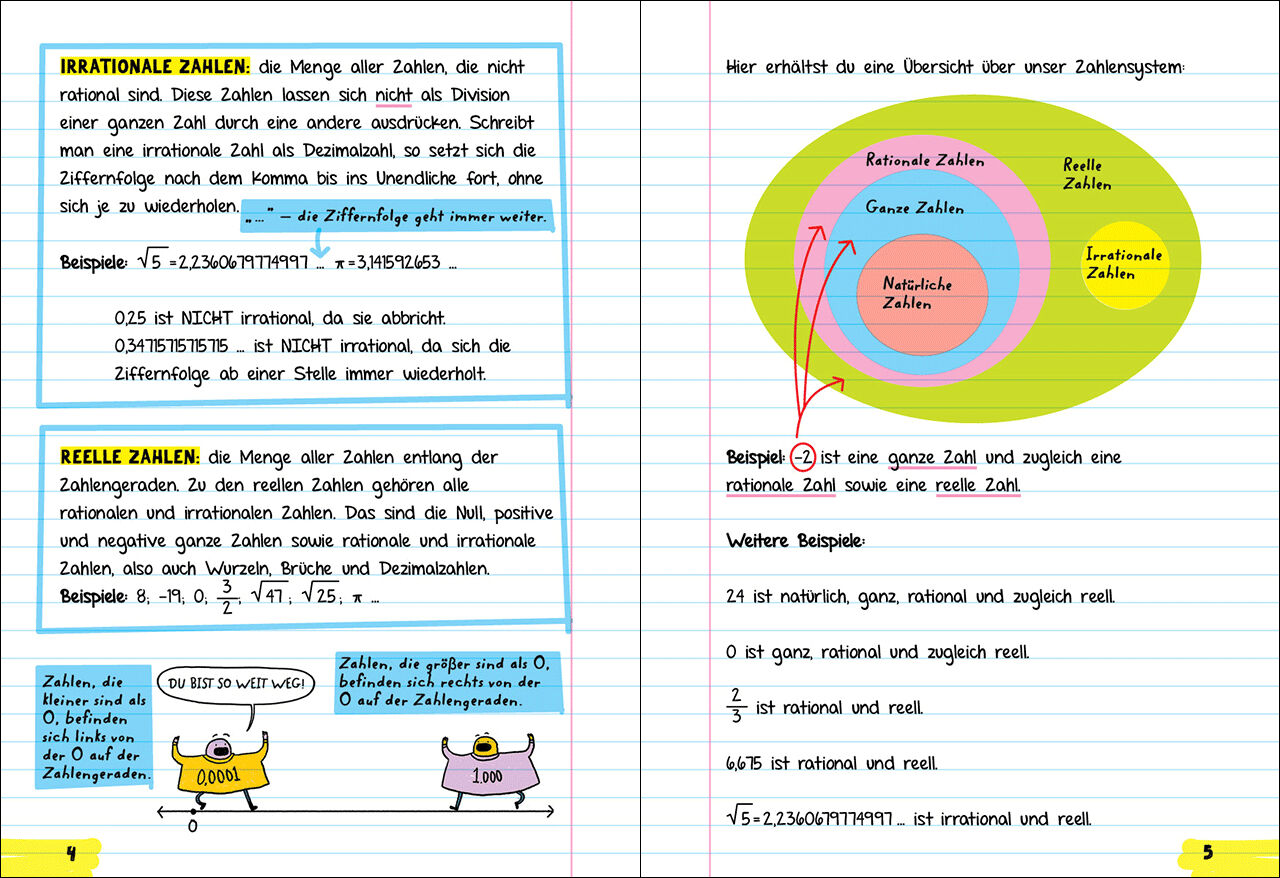 IRRATIONALE ZAHLEN: die Menge aller Zahlen, die nicht
rational sind. Diese Zahlen lassen sich nicht als Division
einer ganzen Zahl durch eine andere ausdrücken. Schreibt
man eine irrationale Zahl als Dezimalzahl, so setzt sich die
Ziffernfolge nach dem Komma bis ins Unendliche fort, ohne
sich je zu wiederholen.
„…” – die Ziffernfolge geht immer weiter.
Beispiele: √5 =2,2360679774997 … π=3,141592653 …
0,25 ist NICHT irrational, da sie abbricht.
0,34715715715715 … ist NICHT irrational, da sich die
Ziffernfolge ab einer Stelle immer wiederholt.
REELLE ZAHLEN: die Menge aller Zahlen entlang der
Zahlengeraden. Zu den reellen Zahlen gehören alle
rationalen und irrationalen Zahlen. Das sind die Null, positive
und negative ganze Zahlen sowie rationale und irrationale
Zahlen, also auch Wurzeln, Brüche und Dezimalzahlen.
Beispiele: 8; –19; 0; 3/2; √47; √25; π …
Zahlen, die
kleiner sind als
0, befinden
sich links von
der 0 auf der
Zahlengeraden.
DU BIST SO WEIT WEG!
Zahlen, die größer sind als 0,
befinden sich rechts von der
0 auf der Zahlengeraden.
0,0001
1.000
0
4
Hier erhältst du eine Übersicht über unser Zahlensystem:
Rationale Zahlen
Reelle
Zahlen
Ganze Zahlen
Irrationale
Zahlen
Natürliche
Zahlen
Beispiel: –2 ist eine ganze Zahl und zugleich eine
rationale Zahl sowie eine reelle Zahl.
Weitere Beispiele:
24 ist natürlich, ganz, rational und zugleich reell.
0 ist ganz, rational und zugleich reell.
2/3 ist rational und reell.
6,675 ist rational und reell.
√5=2,2360679774997… ist irrational und reell.
5